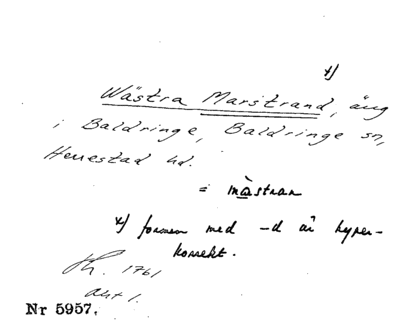 x)
Wästra Marstrand, äng
i Baldringe, Baldringe sn,
Herrestad hd.
= màstran
x) formen med -d är hyper-
korrekt.
1761
akt 1.
Nr 5957.